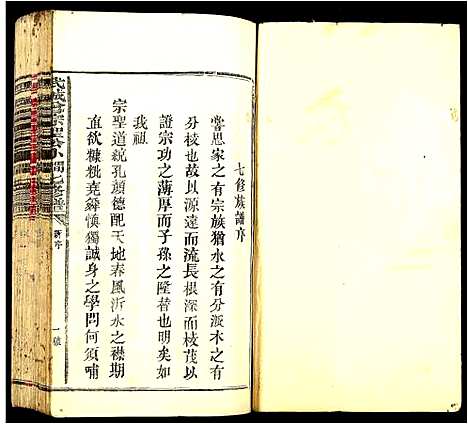 七修族譜序
嘗思家之有宗族猶水之有分派木之有
分枝也故以源遠而流長根深而枝茂以
證宗功之薄厚而子孫之隆替也明矣如
我祖
宗聖道統孔顏德配天地春風沂水之襟期
直欲糠粃堯舜慎獨誠身之學問何須哺
武城曾
宗聖
七修譜
新序
一